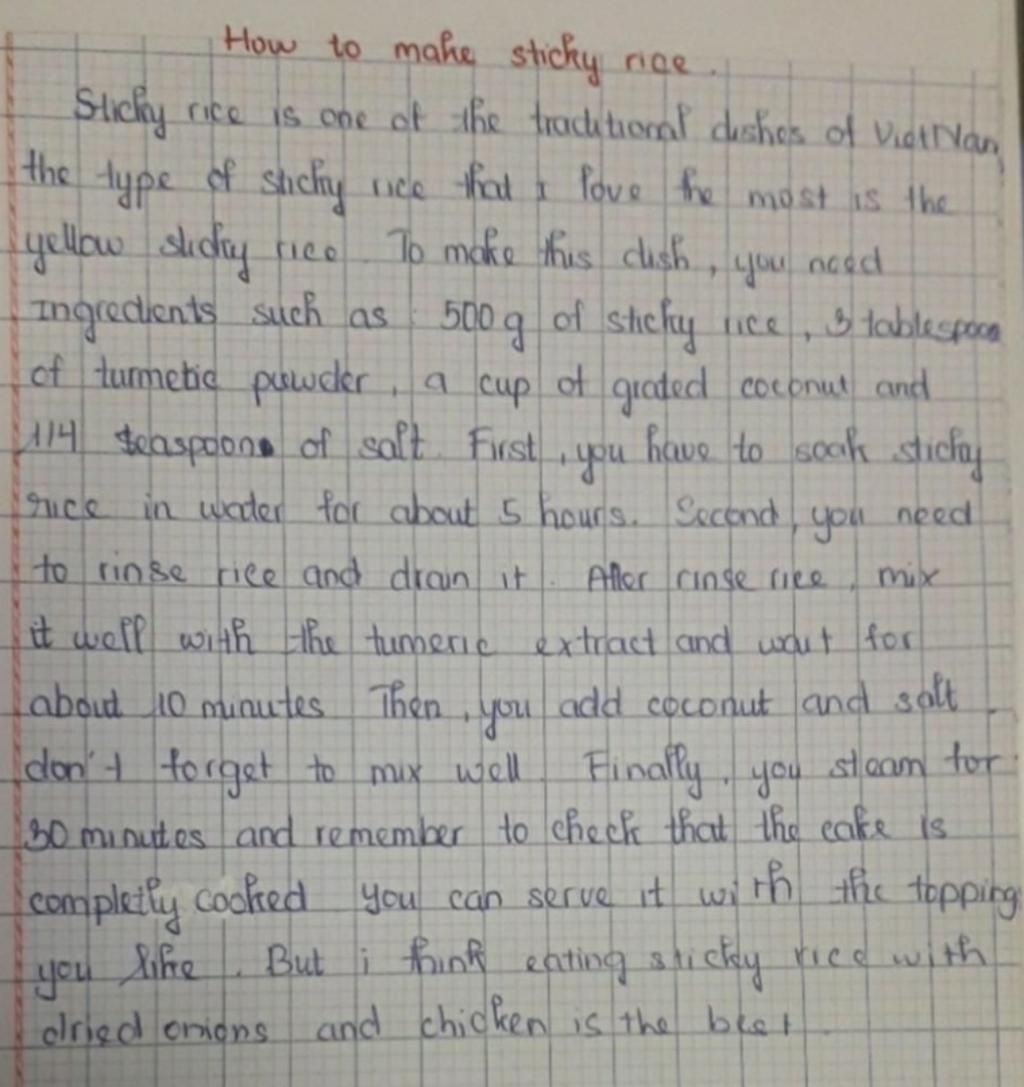 How to make sticky rice.
Sticky rice is one of the traditional dishes of VietNam,
the type of sticky rice that I love the most is the
yellow sticky rice. To make this dish, you need
ingredients such as : 500g of sticky rice, 3 tablespoon
of turmetic puwder, a cup of grated coconut and
1/4 teaspoon of salt. First, you have to soak sticky
rice in water for about 5 hours. Second, you need
to rinse rice and drain it. After rinse rice, mix
it well with the tumeric extract and wait for
about 10 minutes. Then, you add coconut and salt.
don't forget to mix well. Finally, you steam for
30 minutes and remember to check that the cake is
completly cooked. you can serve it with the topping
you like. But i think eating sticky rice with
dried onions and chicken is the best.